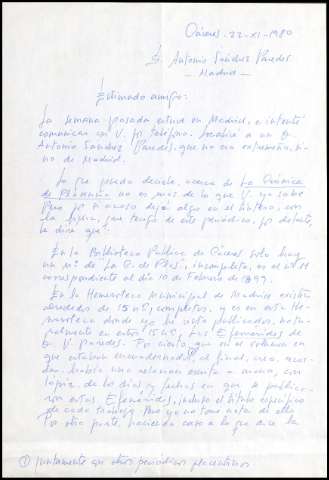 Cáceres, 22-XI-1980
Sr. Antonio Sánchez Paredes
- Madrid -
Estimado amigo:
La semana pasada estuve en Madrid, e intenté
comunicar con V. por teléfono. Localicé a un D.
Antonio Sánchez Paredes, que no era extremeño, si-
no de Madrid.
Lo que puedo decirle, acerca de La Crónica
de Plasencia no es más de lo que V. ya sabe
Pero por si acaso dejé algo en el tintero, con
la ficha, que tengo de este periódico, por delante,
le diré que:
En la Biblioteca Pública de Cáceres solo hay
un nº de La C. de Plas., incompleto, es el nº
correspondiente al día 10 de Febrero de 1899.
En la Hemeroteca Municipal de Madrid existen
alrededor de 1545, completos, y es en esta He-
meroteca donde yo he visto publicadas,
en estos 1545, Las Efemérides, de
D. V. Paredes. Por cierto, que en el volumen en
que estaban encuadernados, al final, creo recor-
dar, había una relación escrita a mano, con
lápiz, de los días y fechas en que se publica-
ron estas Efemérides, incluso el título específico
de cada trabajo. Pero yo no tomé nota de ello
Por otra parte, haciendo caso a lo que dice la
① juntamente con otros periódicos placentinos.